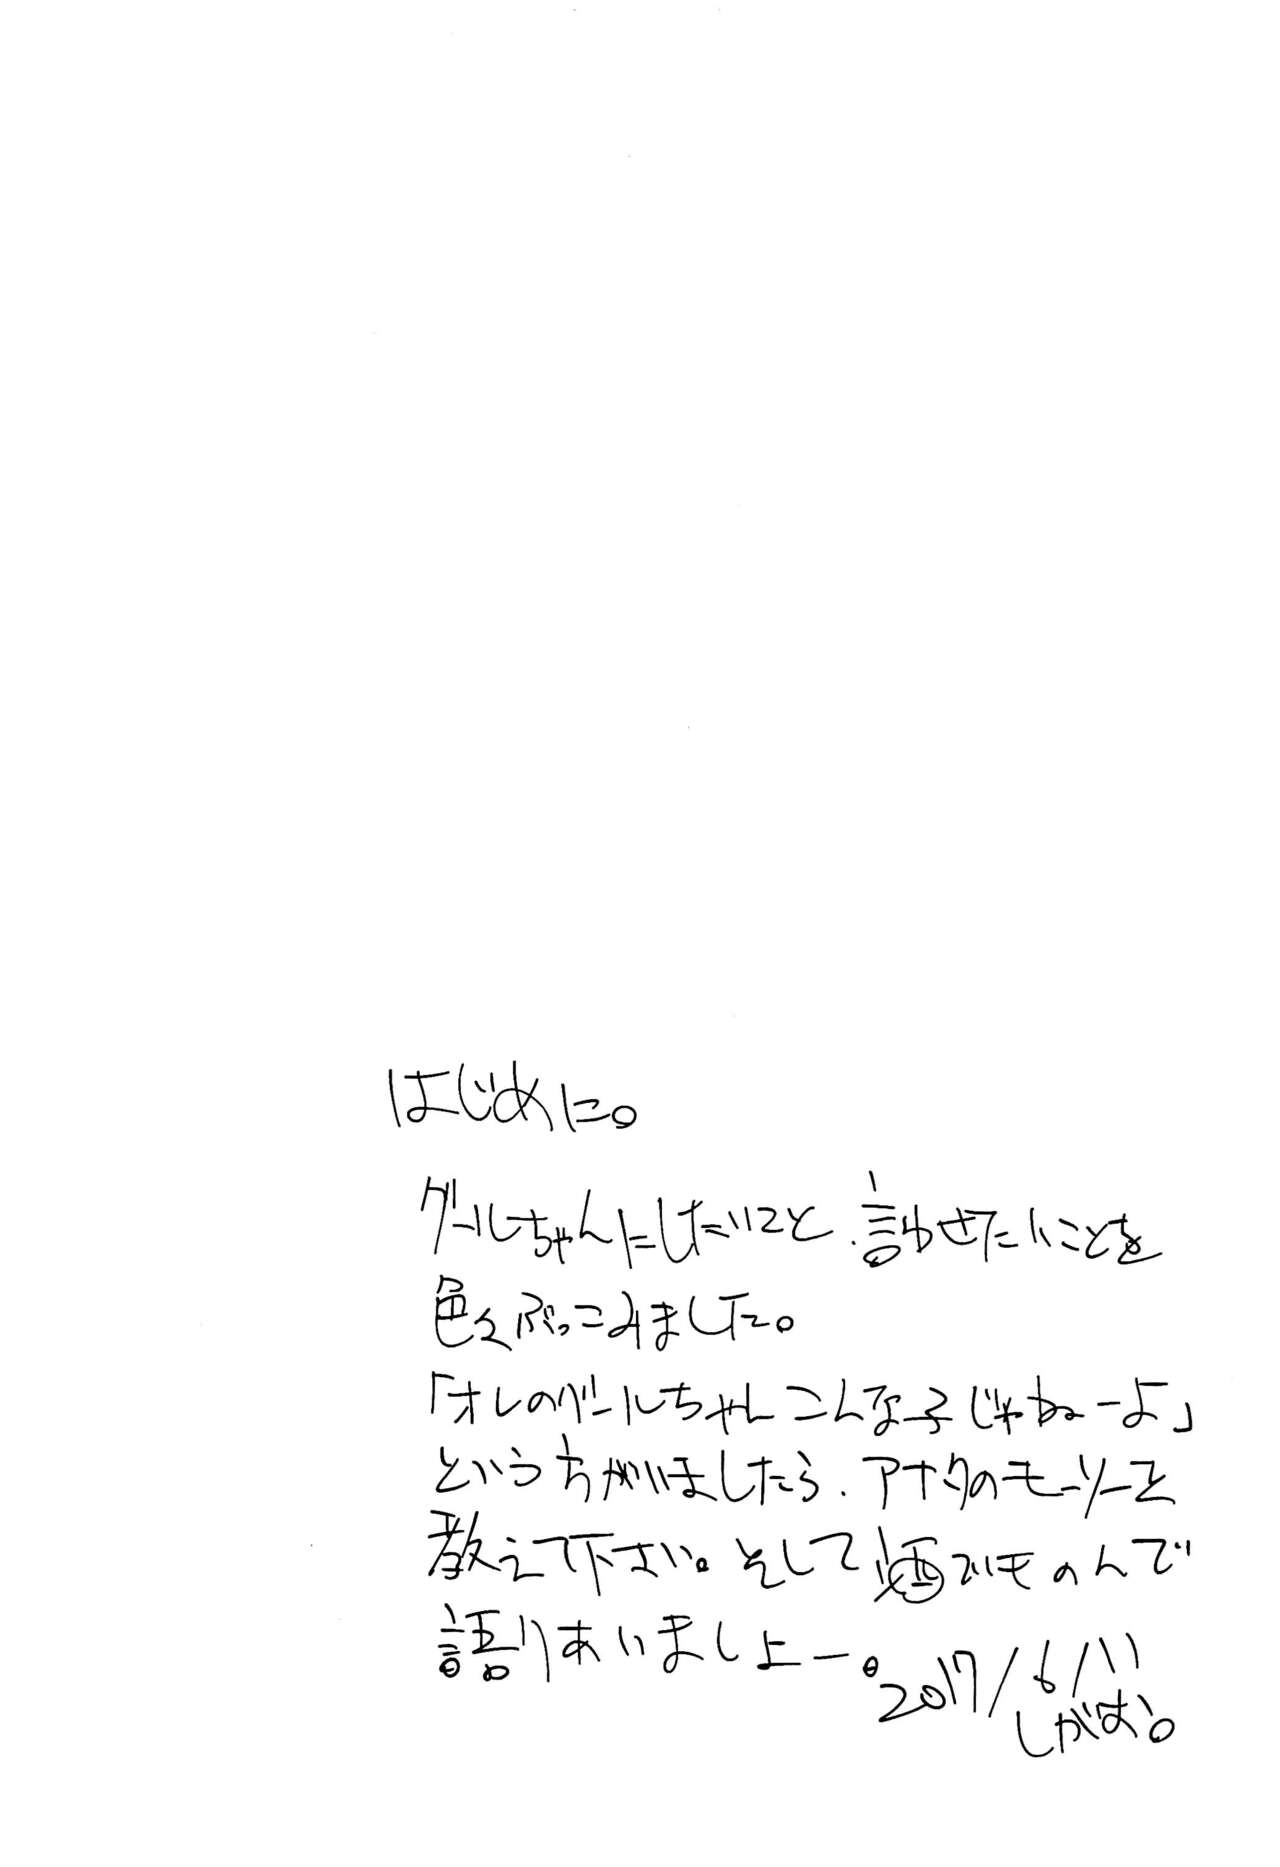 はじめに。
グールちゃんにしたいこと、言わせたいことを
色々ぶっこみました。
「オレのグールちゃんこんな子じゃねーよ」
という方がいましたら、アナタのモーソーを
教えて下さい。そして酒でものんで
語りあいましょー。
2017/6/11
しがお。